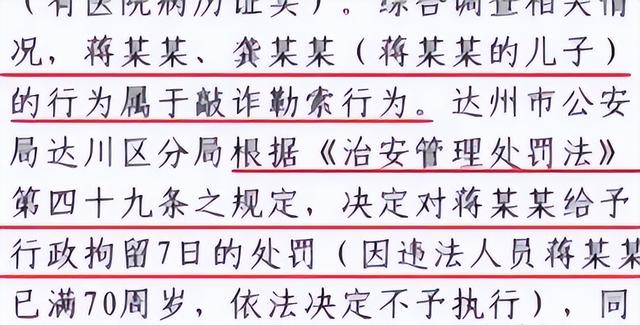 （有医院病历证实）。综合调查相关情
况，蒋某某、龚某某（蒋某某的儿子）
的行为属于敲诈勒索行为。达州市公安
局达川区分局根据《治安管理处罚法》
第四十九条之规定，决定对蒋某某给予
行政拘留7日的处罚（因违法人员蒋某某
已满70周岁，依法决定不予执行），同